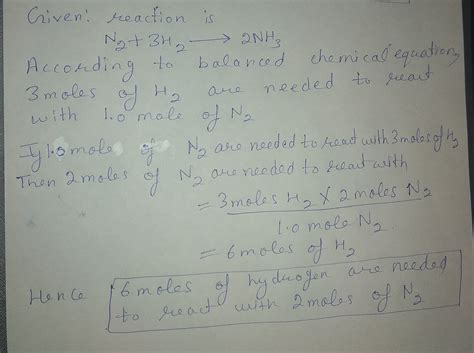 Given: reaction is
N₂ + 3H₂ ⟶ 2NH₃
According to balanced chemical equation,
3 moles of H₂ are needed to react
with 1.0 mole of N₂
If 1.0 mole of N₂ are needed to react with 3 moles of H₂
Then 2 moles of N₂ are needed to react with
= 3 moles H₂ × 2 moles N₂
1.0 mole N₂
= 6 moles of H₂
Hence 6 moles of hydrogen are needed
to react with 2 moles of N₂